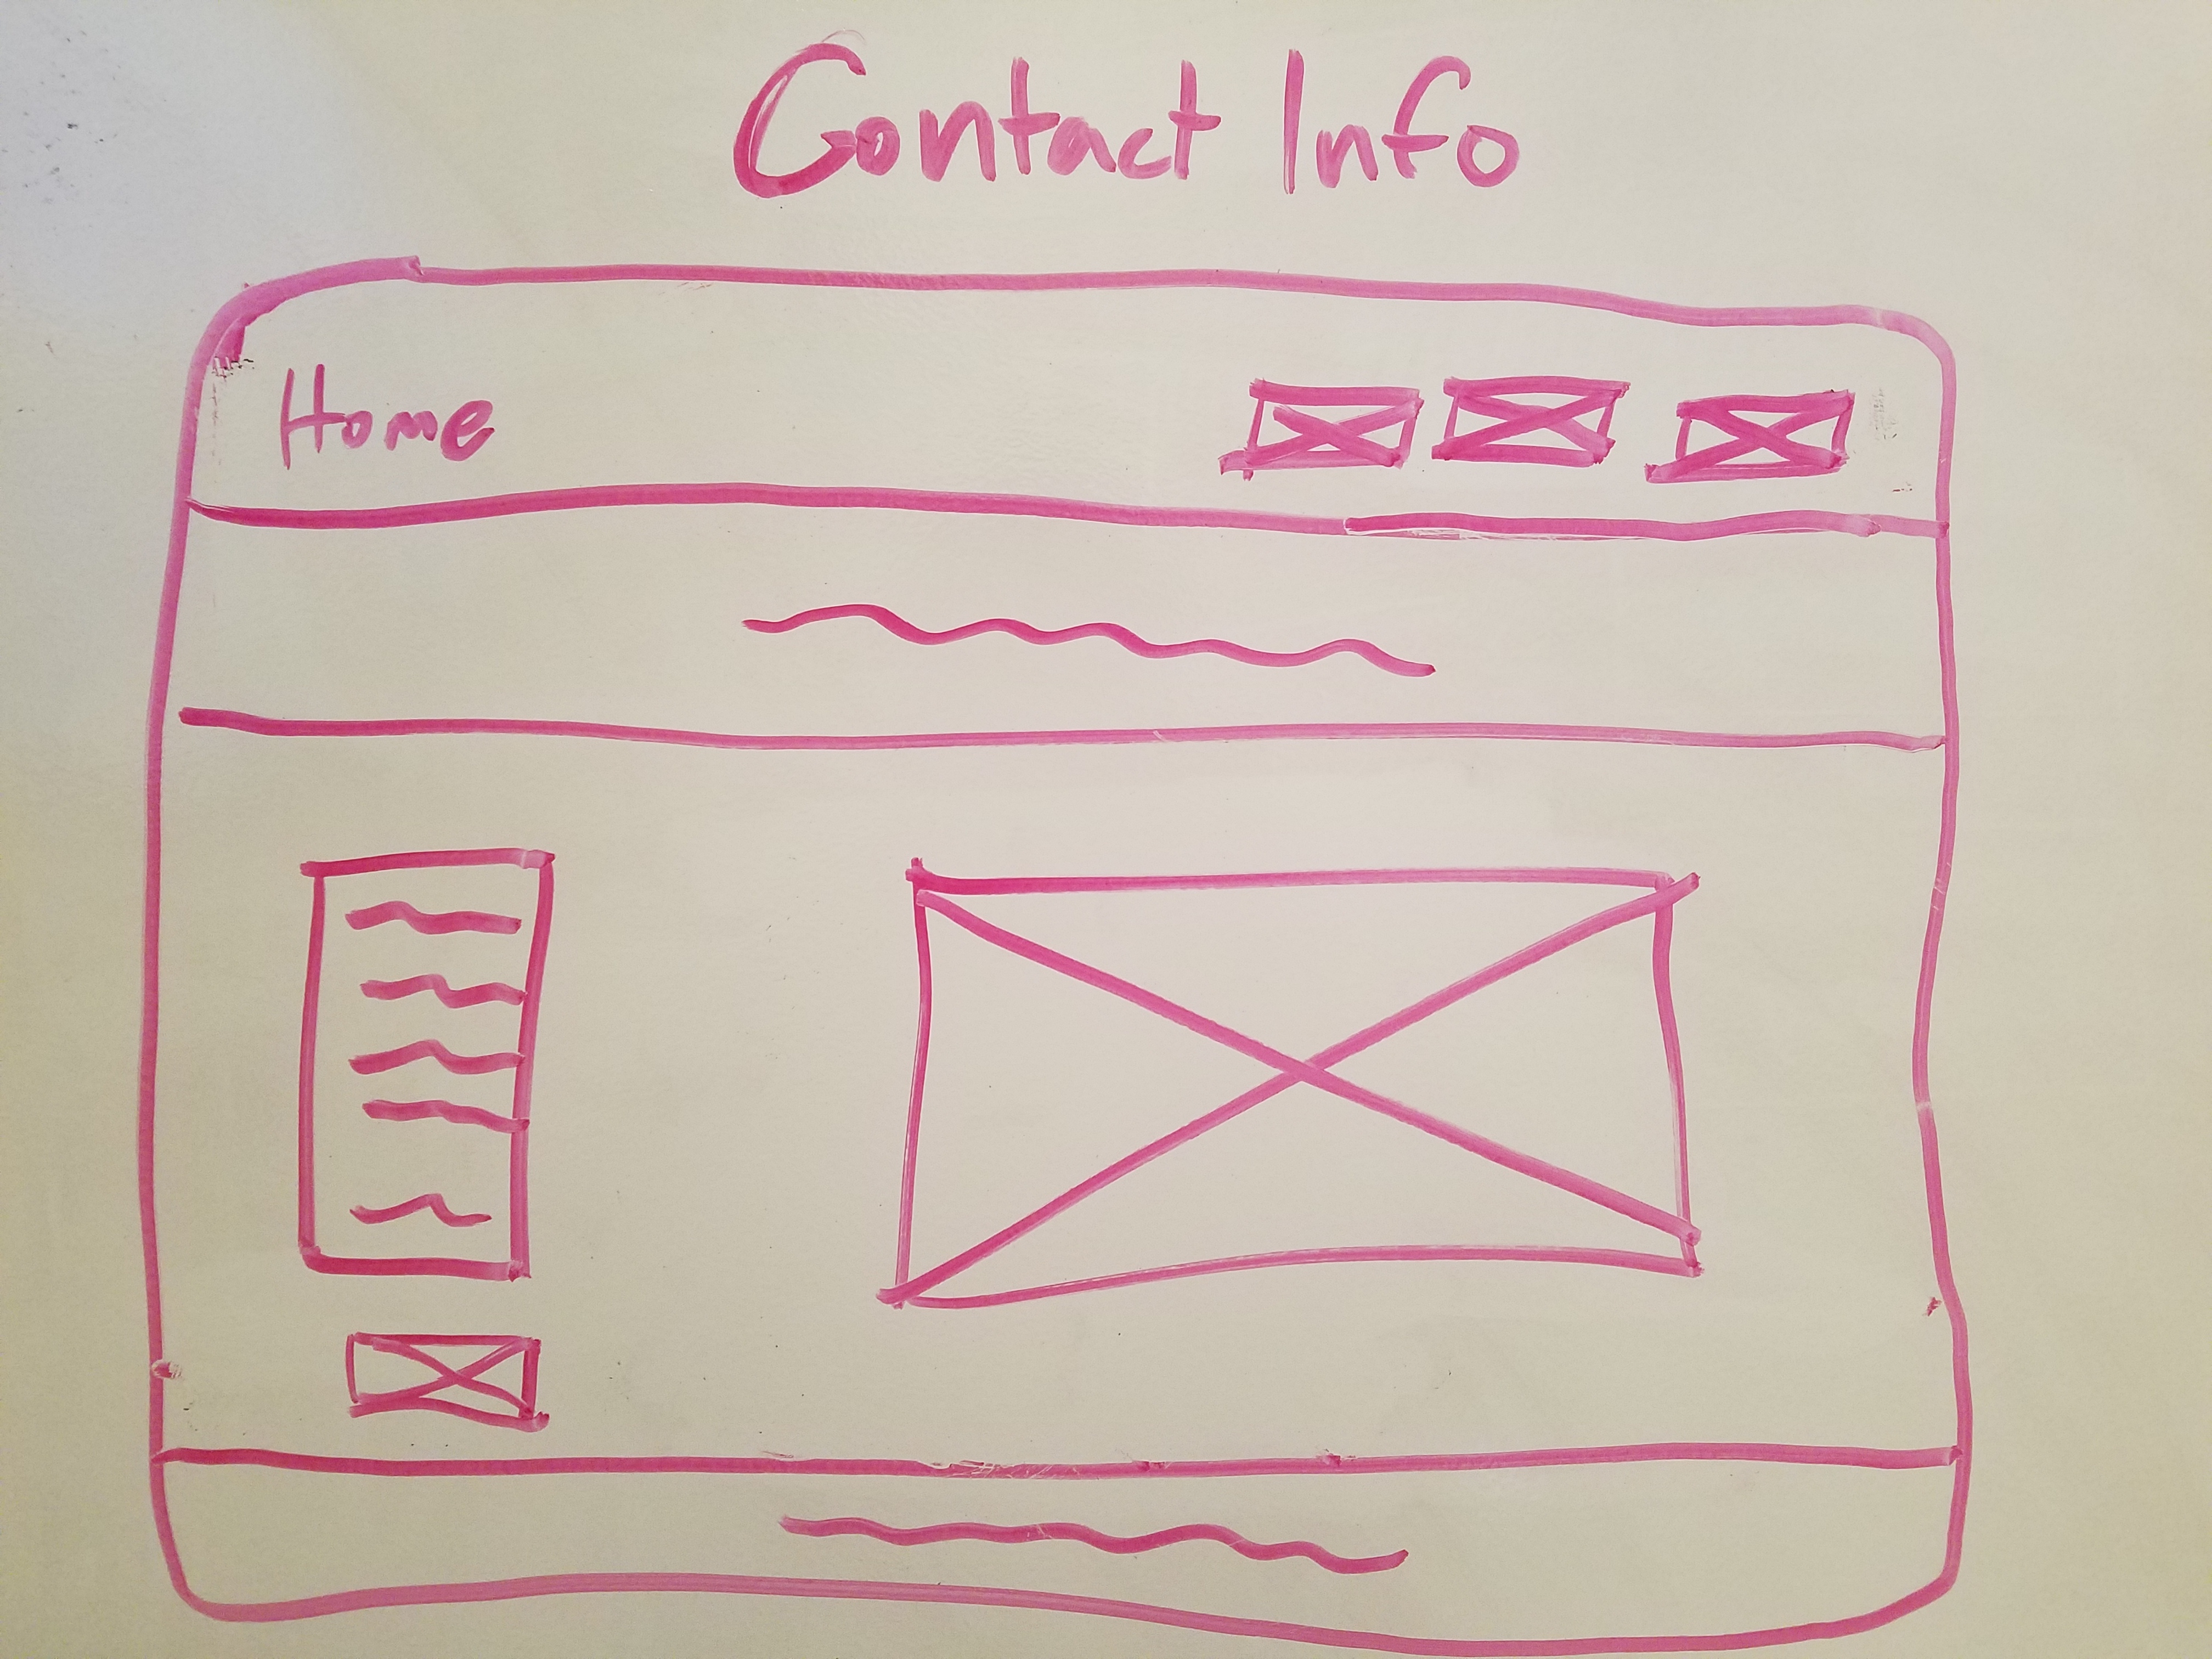 Contact Info
Home